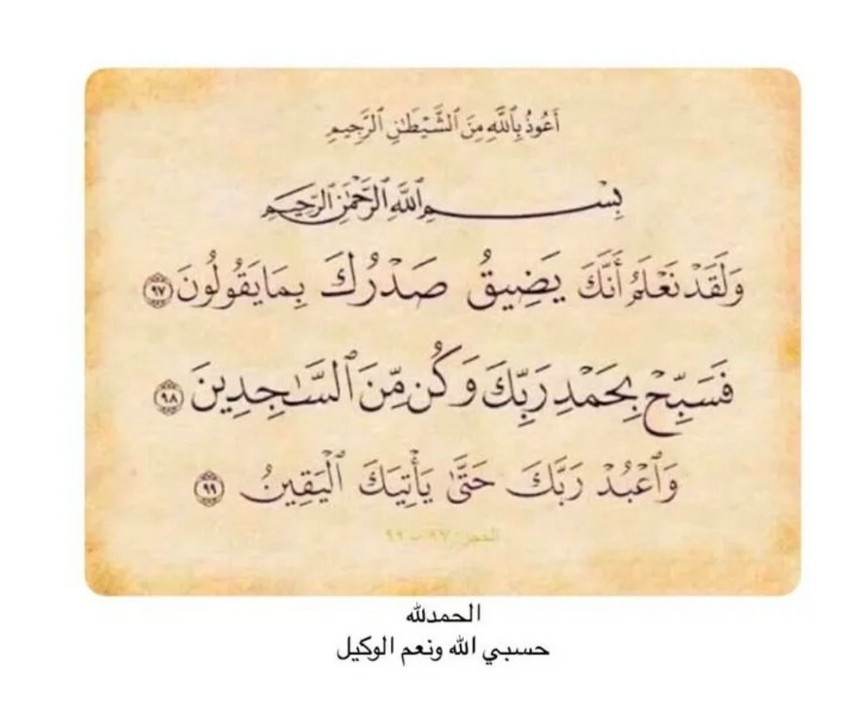 أَعُوذُ بِٱللَّهِ مِنَ ٱلشَّيْطَٰنِ ٱلرَّجِيمِ
بِسْمِ ٱللَّهِ ٱلرَّحْمَٰنِ ٱلرَّحِيمِ
وَلَقَدْ نَعْلَمُ أَنَّكَ يَضِيقُ صَدْرُكَ بِمَا يَقُولُونَ ٩٧
فَسَبِّحْ بِحَمْدِ رَبِّكَ وَكُن مِّنَ ٱلسَّٰجِدِينَ ٩٨
وَٱعْبُدْ رَبَّكَ حَتَّىٰ يَأْتِيَكَ ٱلْيَقِينُ ٩٩
الحجر: ٩٧ - ٩٩
الحمدلله
حسبي الله ونعم الوكيل